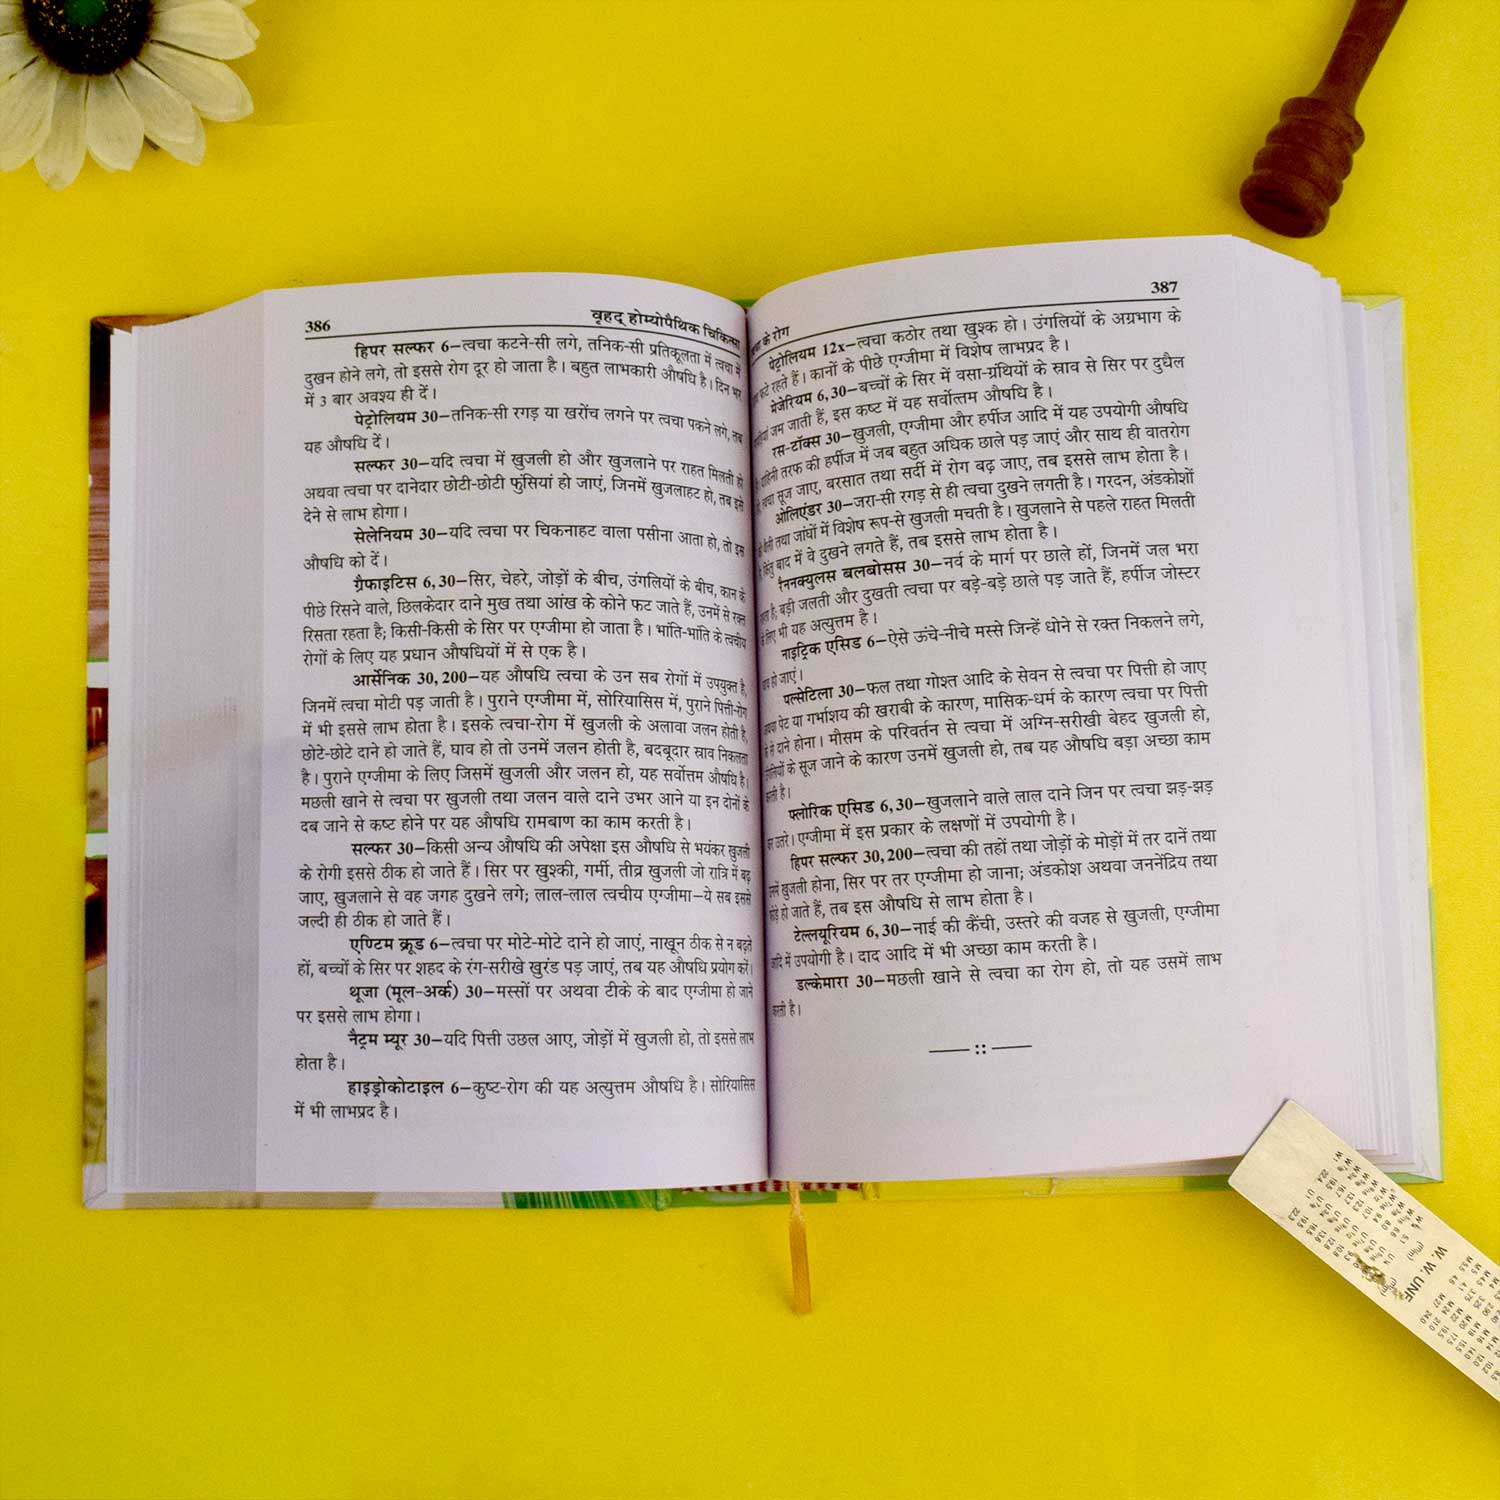 386
वृहद् होम्योपैथिक चिकित्सा
हिपर सल्फर 6–त्वचा कटने-सी लगे, तनिक-सी प्रतिकूलता में त्वचा में
दुखन होने लगे, तो इससे रोग दूर हो जाता है। बहुत लाभकारी औषधि है। दिन भर
में 3 बार अवश्य ही दें।
पेट्रोलियम 30–तनिक-सी रगड़ या खरोंच लगने पर त्वचा पकने लगे, तब
यह औषधि दें।
सल्फर 30–यदि त्वचा में खुजली हो और खुजलाने पर राहत मिलती हो
अथवा त्वचा पर दानेदार छोटी-छोटी फुंसियां हो जाएं, जिनमें खुजलाहट हो, तब इसे
देने से लाभ होगा।
सेलेनियम 30–यदि त्वचा पर चिकनाहट वाला पसीना आता हो, तो इस
औषधि को दें।
ग्रैफाइटिस 6,30–सिर, चेहरे, जोड़ों के बीच, उंगलियों के बीच, कान के
पीछे रिसने वाले, छिलकेदार दाने मुख तथा आंख के कोने फट जाते हैं, उनमें से रक्त
रिसता रहता है; किसी-किसी के सिर पर एग्जीमा हो जाता है। भांति-भांति के त्वचीय
रोगों के लिए यह प्रधान औषधियों में से एक है।
आर्सेनिक 30,200–यह औषधि त्वचा के उन सब रोगों में उपयुक्त है,
जिनमें त्वचा मोटी पड़ जाती है। पुराने एग्जीमा में, सोरियासिस में, पुराने पित्ती-रोग
में भी इससे लाभ होता है। इसके त्वचा-रोग में खुजली के अलावा जलन होती है,
छोटे-छोटे दाने हो जाते हैं, घाव हो तो उनमें जलन होती है, बदबूदार स्राव निकलता
है। पुराने एग्जीमा के लिए जिसमें खुजली और जलन हो, यह सर्वोत्तम औषधि है।
मछली खाने से त्वचा पर खुजली तथा जलन वाले दाने उभर आने या इन दोनों के
दब जाने से कष्ट होने पर यह औषधि रामबाण का काम करती है।
सल्फर 30–किसी अन्य औषधि की अपेक्षा इस औषधि से भयंकर खुजली
के रोगी इससे ठीक हो जाते हैं। सिर पर खुश्की, गर्मी, तीव्र खुजली जो रात्रि में बढ़
जाए, खुजलाने से वह जगह दुखने लगे; लाल-लाल त्वचीय एग्जीमा–ये सब इससे
जल्दी ही ठीक हो जाते हैं।
एण्टिम क्रूड 6–त्वचा पर मोटे-मोटे दाने हो जाएं, नाखून ठीक से न बढ़ते
हों, बच्चों के सिर पर शहद के रंग-सरीखे खुरंड पड़ जाएं, तब यह औषधि प्रयोग करें।
थूजा (मूल-अर्क) 30–मस्सों पर अथवा टीके के बाद एग्जीमा हो जाने
पर इससे लाभ होगा।
नैट्रम म्यूर 30–यदि पित्ती उछल आए, जोड़ों में खुजली हो, तो इससे लाभ
होता है।
हाइड्रोकोटाइल 6–कुष्ट-रोग की यह अत्युत्तम औषधि है। सोरियासिस
में भी लाभप्रद है।
के रोग
387
पेट्रोलियम 12x–त्वचा कठोर तथा खुश्क हो। उंगलियों के अग्रभाग के
फटे रहते हैं। कानों के पीछे एग्जीमा में विशेष लाभप्रद है।
मेजेरियम 6,30–बच्चों के सिर में वसा-ग्रंथियों के स्राव से सिर पर दुधैल
जम जाती हैं, इस कष्ट में यह सर्वोत्तम औषधि है।
रस-टॉक्स 30–खुजली, एग्जीमा और हर्पीज आदि में यह उपयोगी औषधि
तरफ की हर्पीज में जब बहुत अधिक छाले पड़ जाएं और साथ ही वातरोग
त्वचा सूज जाए, बरसात तथा सर्दी में रोग बढ़ जाए, तब इससे लाभ होता है।
ओलिएंडर 30–जरा-सी रगड़ से ही त्वचा दुखने लगती है। गरदन, अंडकोशों
तथा जांघों में विशेष रूप-से खुजली मचती है। खुजलाने से पहले राहत मिलती
किंतु बाद में वे दुखने लगते हैं, तब इससे लाभ होता है।
रैननक्युलस बलबोसस 30–नर्व के मार्ग पर छाले हों, जिनमें जल भरा
है; बड़ी जलती और दुखती त्वचा पर बड़े-बड़े छाले पड़ जाते हैं, हर्पीज जोस्टर
भी यह अत्युत्तम है।
नाइट्रिक एसिड 6–ऐसे ऊंचे-नीचे मस्से जिन्हें धोने से रक्त निकलने लगे,
हो जाएं।
पल्सेटिला 30–फल तथा गोश्त आदि के सेवन से त्वचा पर पित्ती हो जाए
पेट या गर्भाशय की खराबी के कारण, मासिक-धर्म के कारण त्वचा पर पित्ती
से दाने होना। मौसम के परिवर्तन से त्वचा में अग्नि-सरीखी बेहद खुजली हो,
के सूज जाने के कारण उनमें खुजली हो, तब यह औषधि बड़ा अच्छा काम
करती है।
फ्लोरिक एसिड 6,30–खुजलाने वाले लाल दाने जिन पर त्वचा झड़-झड़
उतरे। एग्जीमा में इस प्रकार के लक्षणों में उपयोगी है।
हिपर सल्फर 30,200–त्वचा की तहों तथा जोड़ों के मोड़ों में तर दानें तथा
खुजली होना, सिर पर तर एग्जीमा हो जाना; अंडकोश अथवा जननेंद्रिय तथा
हो जाते हैं, तब इस औषधि से लाभ होता है।
टेल्लयूरियम 6,30–नाई की कैंची, उस्तरे की वजह से खुजली, एग्जीमा
में उपयोगी है। दाद आदि में भी अच्छा काम करती है।
डल्केमारा 30–मछली खाने से त्वचा का रोग हो, तो यह उसमें लाभ
करती है।
W. W. UNF